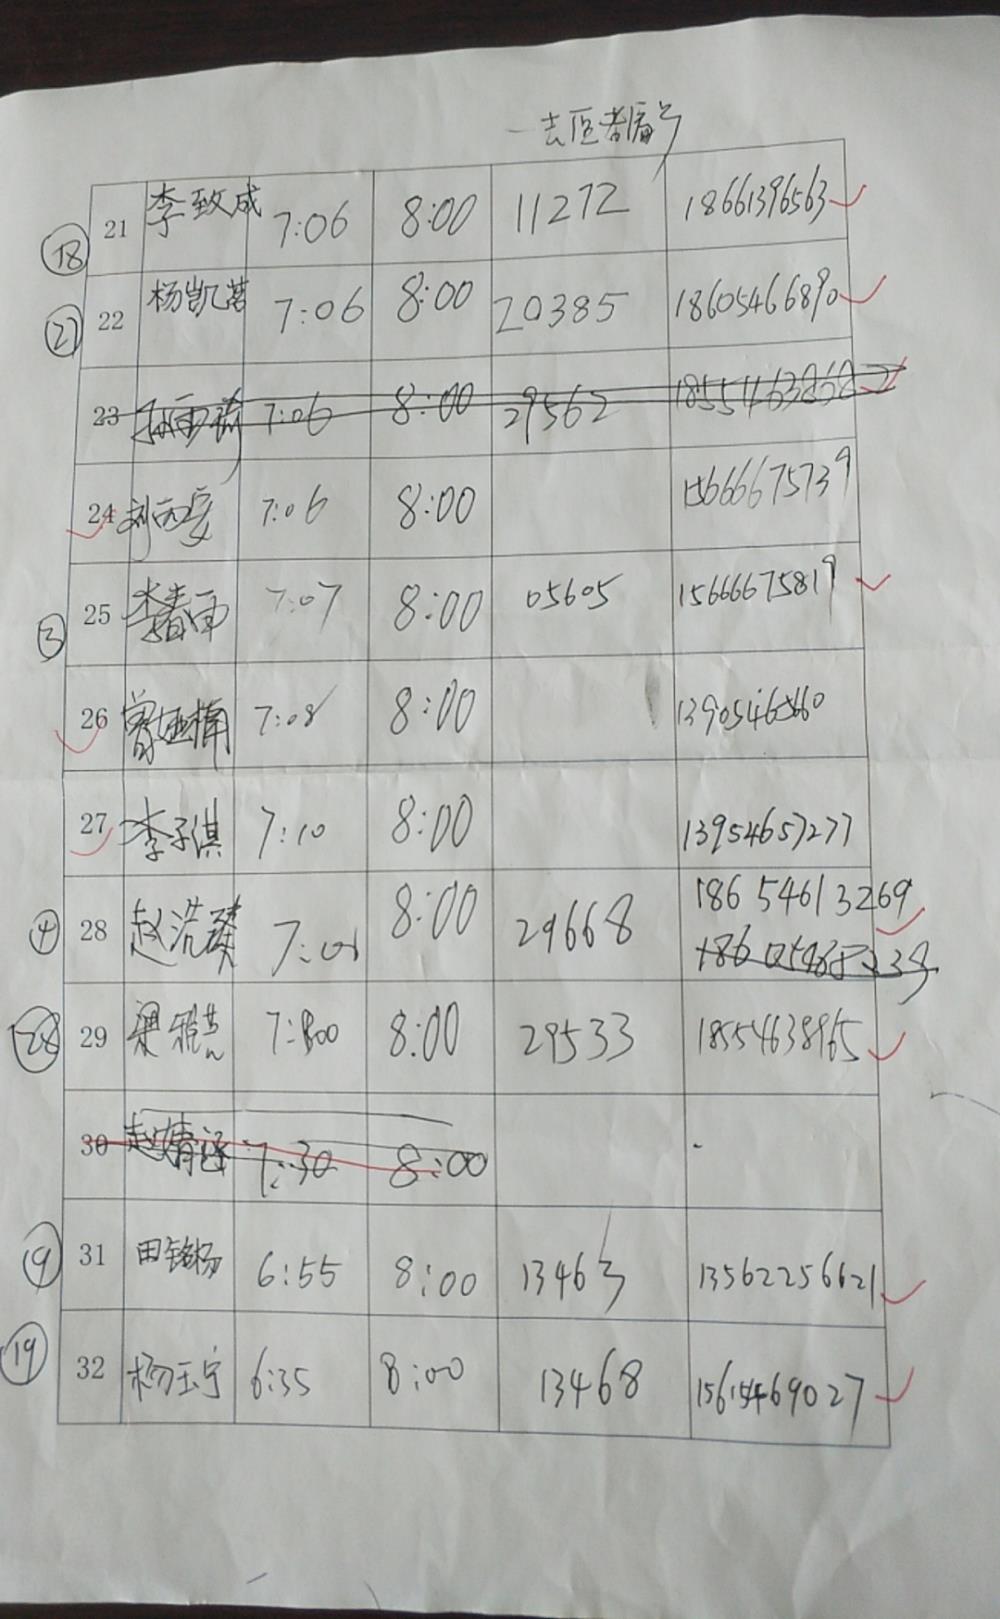 志愿者编号
⑱ 21 李致成 7:06 8:00 11272 18661396563
22 杨凯茗 7:06 8:00 20385 18605466890
23 7:06 8:00 29562
24 7:06 8:00 15666675739
③ 25 李春雨 7:07 8:00 05605 15666675819
26 曾亚楠 7:08 8:00
27 李子淇 7:10 8:00 13954657277
④ 28 赵浩 8:00 29668 18654613269
29 梁雅 8:00 29533 18554638965
30 赵婧涵 7:30 8:00
⑨ 31 田铭杨 6:55 8:00 13463 13562256621
⑲ 32 杨玉宁 6:35 8:00 13468 15615469027